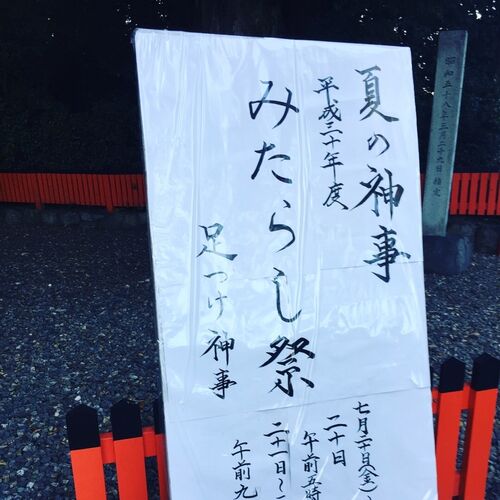 夏の神事
平成三十年度
みたらし祭
足つけ神事
七月二十日(金)
二十日
午前五時
二十一日～
午前九
昭和五十八年三月二十九日指定